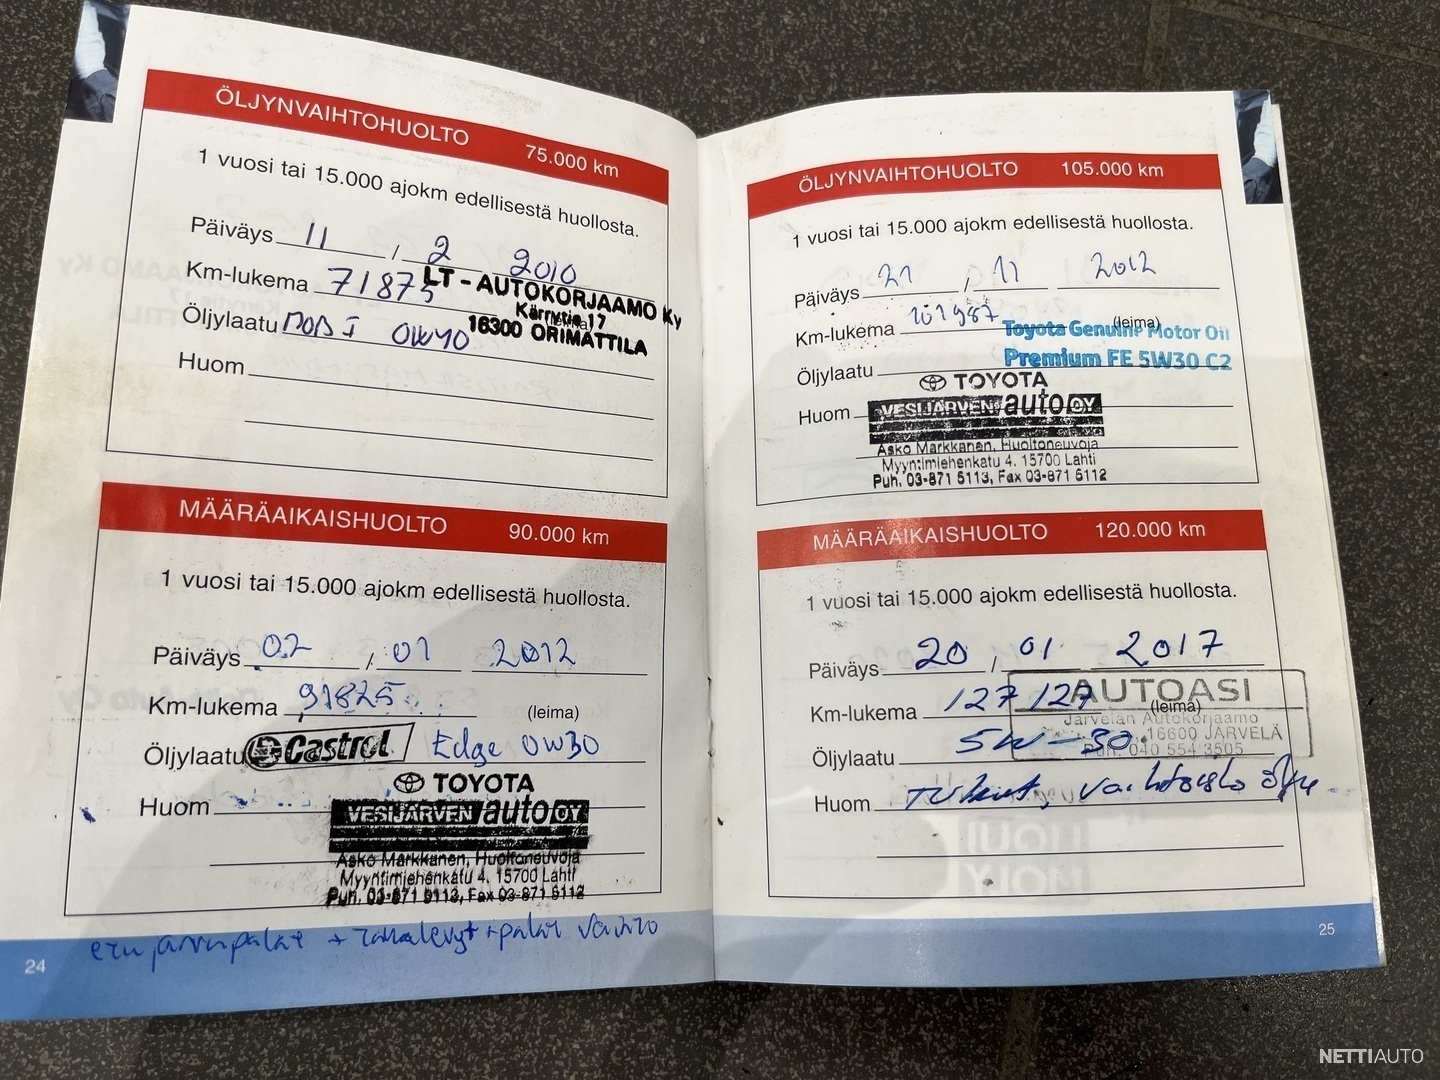 ÖLJYNVAIHTOHUOLTO 75.000 km
1 vuosi tai 15.000 ajokm edellisestä huollosta.
Päiväys 11 / 2 2010
Km-lukema 71875
LT - AUTOKORJAAMO Ky
Kärrytie 17
(leima)
16300 ORIMATTILA
Öljylaatu 0W40
Huom
MÄÄRÄAIKAISHUOLTO 90.000 km
1 vuosi tai 15.000 ajokm edellisestä huollosta.
Päiväys 02 / 01 2012
Km-lukema 91825 (leima)
Öljylaatu Castrol Edge 0W30
Huom
TOYOTA
VESIJÄRVEN auto OY
Asko Markkanen, Huoltoneuvoja
Myyntimiehenkatu 4, 15700 Lahti
Puh. 03-871 5113, Fax 03-871 5112
etu jarrupalat + takalevyt + palat vaihto
24
ÖLJYNVAIHTOHUOLTO 105.000 km
1 vuosi tai 15.000 ajokm edellisestä huollosta.
Päiväys 21 / 11 2012
Km-lukema 101987 (leima)
Toyota Genuine Motor Oil
Premium FE 5W30 C2
Öljylaatu
TOYOTA
Huom VESIJÄRVEN auto OY
Asko Markkanen, Huoltoneuvoja
Myyntimiehenkatu 4, 15700 Lahti
Puh. 03-871 5113, Fax 03-871 5112
MÄÄRÄAIKAISHUOLTO 120.000 km
1 vuosi tai 15.000 ajokm edellisestä huollosta.
Päiväys 20 / 01 2017
Km-lukema 127 127 (leima)
AUTOASI
Järvelän Autokorjaamo
16600 JÄRVELÄ
Puh. 040 554 3505
Öljylaatu 5W-30
Huom
25
NETTIAUTO